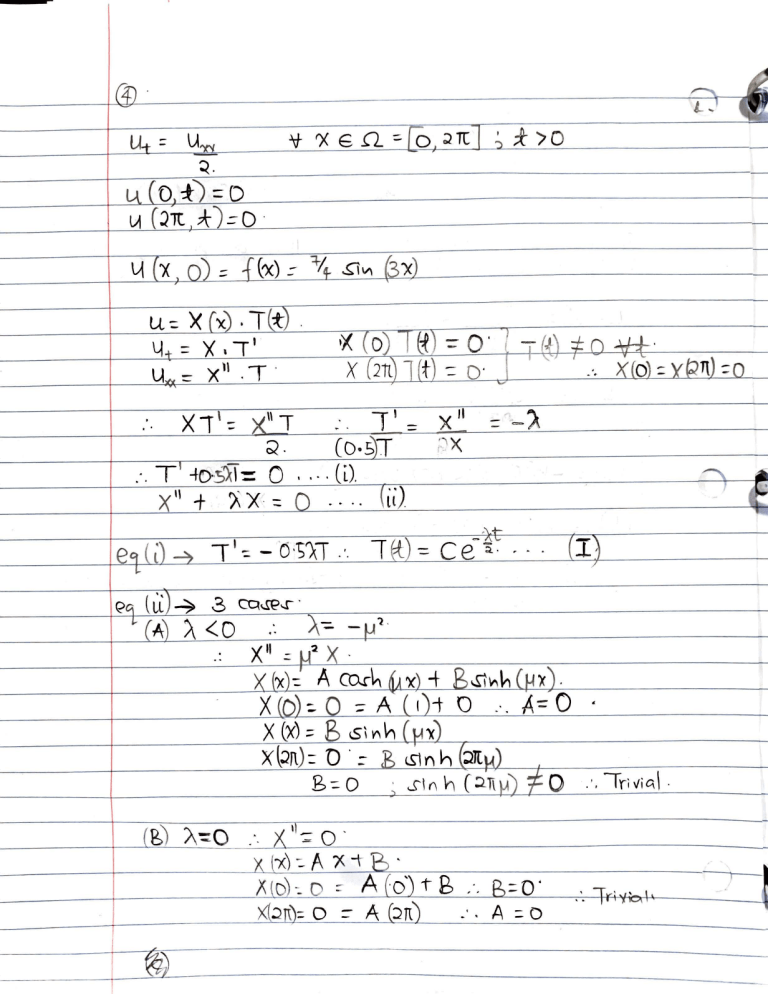 ④
1.
u_t = u_xx/2. ∀ x ∈ Ω = [0, 2π] ; t > 0
u(0, t) = 0
u(2π, t) = 0
u(x, 0) = f(x) = 7/4 sin (3x)
u = X(x) . T(t)
u_t = X . T' X(0) T(t) = 0 } T(t) ≠ 0 ∀t.
u_xx = X'' . T X(2π) T(t) = 0. ∴ X(0) = X(2π) = 0
∴ XT' = X''T/2. ∴ T'/(0.5)T = X''/X = -λ
∴ T' + 0.5λT = 0 .... (i).
X'' + λX = 0 .... (ii)
eq(i) → T' = -0.5λT ∴ T(t) = Ce^(-λt/2) .... (I)
eq (ii) → 3 cases.
(A) λ<0 ∴ λ = -μ².
∴ X'' = μ² X.
X(x) = A cosh(μx) + B sinh(μx).
X(0) = 0 = A (1) + 0 ∴ A=0.
X(x) = B sinh(μx)
X(2π) = 0 = B sinh (2πμ)
B=0 ; sinh (2πμ) ≠ 0 ∴ Trivial.
(B) λ=0 ∴ X''=0
X(x) = A x + B.
X(0) = 0 = A(0) + B ∴ B=0
∴ Trivial.
X(2π) = 0 = A(2π) ∴ A = 0